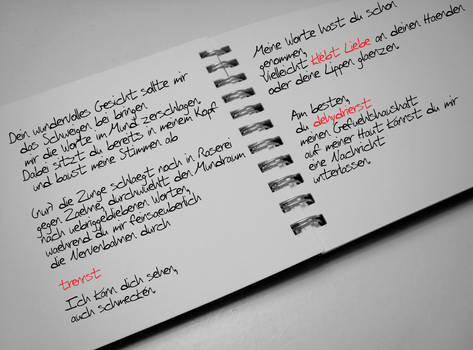 Dein wundervolles Gesicht sollte mir
das Schweigen bei bringen
mir die Worte im Mund zerschlagen.
Dabei sitzt du bereits in meinem Kopf
und baust meine Stimmen ab
(nur) die Zunge schlaegt noch in Raserei
gegen Zaehne, durchwuehlt den Mundraum
nach uebriggebliebenen Worten,
waehrend du mir feinsaeuberlich
die Nervenbahnen durch
trennst
Ich kann dich sehen,
auch schmecken.
Meine Worte hast du schon
genommen,
vielleicht klebt Liebe an deinen Haenden
oder deine Lippen glaenzen.
Am besten,
du dehydrierst
meinen Gefuehlshaushalt
auf meiner Haut kannst du mir
eine Nachricht
unterlassen.